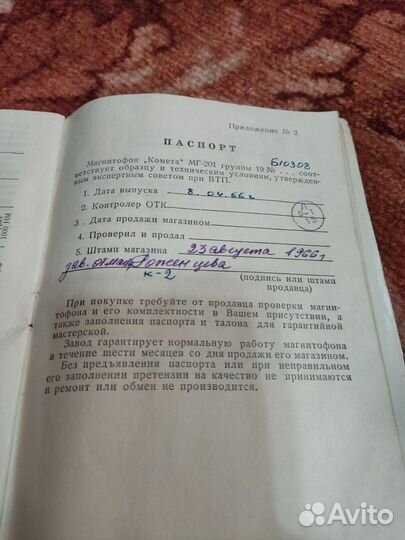 Приложение № 2
ПАСПОРТ
Магнитофон „Комета" МГ-201 группы 19 № Б10308 . . . соот-
ветствует образцу и техническим условиям, утвержден-
ным экспертным советом при ВТП.
1. Дата выпуска 8. 04. 66 г
2. Контролер ОТК
3. Дата продажи магазином
4. Проверил и продал
5. Штамп магазина 23 августа 1966 г
зав. отмаг
к-2
(подпись или штамп
продавца)
При покупке требуйте от продавца проверки магни-
тофона и его комплектности в Вашем присутствии, а
также заполнения паспорта и талона для гарантийной
мастерской.
Завод гарантирует нормальную работу магнитофона
в течение шести месяцев со дня продажи его магазином.
Без предъявления паспорта или при неправильном
его заполнении претензии на качество не принимаются
и ремонт или обмен не производится.
Avito